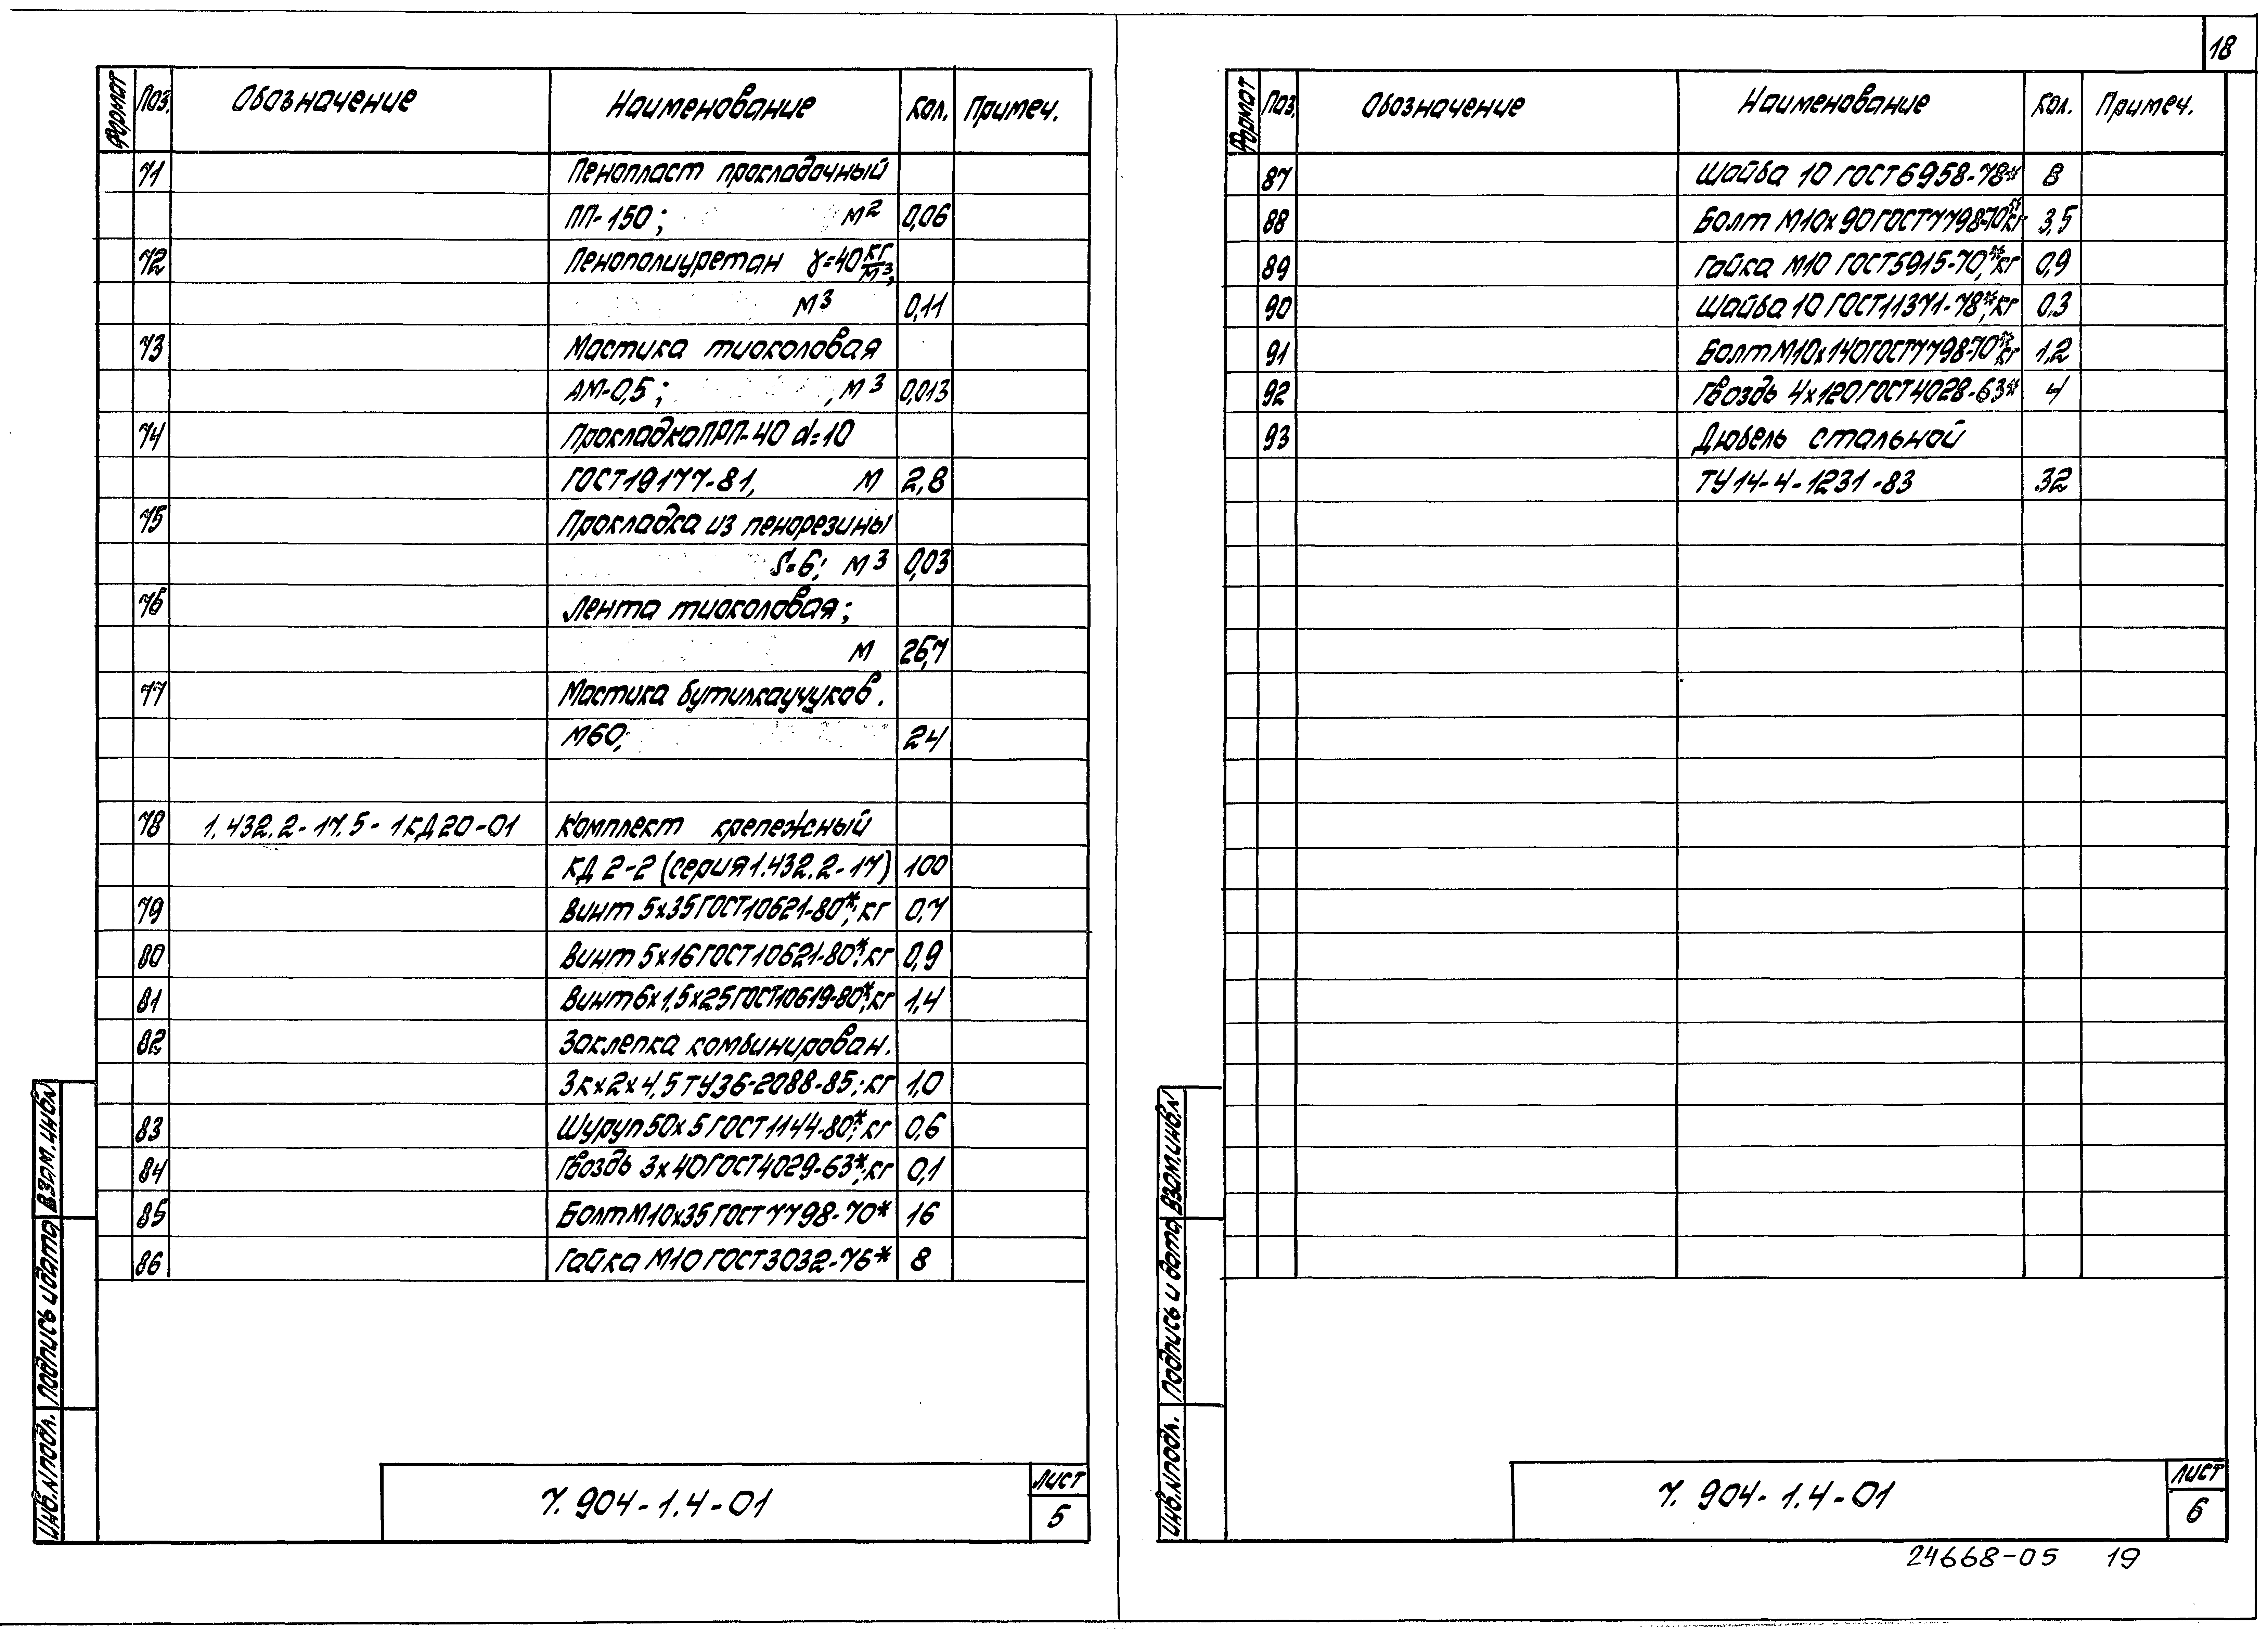 18
Формат Поз. Обозначение Наименование Кол. Примеч.
71 Пенопласт прокладочный
ПП-150; м2 0,06
72 Пенополиуретан γ=40 кг/м3,
м3 0,11
73 Мастика тиоколовая
АМ-0,5; м3 0,013
74 Прокладка ПРП-40 d=10
ГОСТ 19177-81, м 2,8
75 Прокладка из пенорезины
S=6; м3 0,03
76 Лента тиоколовая;
м 26,7
77 Мастика бутилкаучуков.
М60; 24
78 1.432.2-17.5-1КД20-01 Комплект крепежный
КД 2-2 (серия 1.432.2-17) 100
79 Винт 5х35 ГОСТ 10621-80*; кг 0,7
80 Винт 5х16 ГОСТ 10621-80*; кг 0,9
81 Винт 6х1,5х25 ГОСТ 10619-80*; кг 1,4
82 Заклепка комбинирован.
Зкх2х4,5 ТУ36-2088-85; кг 1,0
83 Шуруп 50х5 ГОСТ 1144-80*; кг 0,6
84 Гвоздь 3х40 ГОСТ 4029-63*; кг 0,1
85 Болт М10х35 ГОСТ 7798-70* 16
86 Гайка М10 ГОСТ 3032-76* 8
Инв.N подл. Подпись и дата Взам.инв.N
7.904-1.4-01
Лист
5
Формат Поз. Обозначение Наименование Кол. Примеч.
87 Шайба 10 ГОСТ 6958-78* 8
88 Болт М10х90 ГОСТ 7798-70*; кг 3,5
89 Гайка М10 ГОСТ 5915-70*; кг 0,9
90 Шайба 10 ГОСТ 11371-78*; кг 0,3
91 Болт М10х140 ГОСТ 7798-70*; кг 1,2
92 Гвоздь 4х120 ГОСТ 4028-63* 4
93 Дюбель стальной
ТУ 14-4-1231-83 32
Инв.N подл. Подпись и дата Взам.инв.N
7.904-1.4-01
Лист
6
24668-05 19